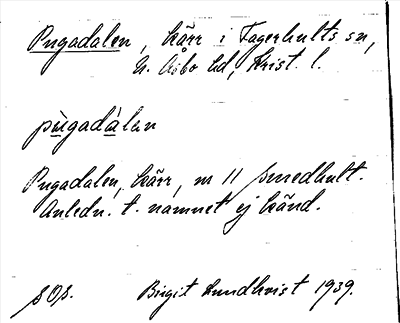 Pugadalen, kärr i Fagerhults sn,
N. Åsbo hd, Krist. l.
pùgadàlen
Pugadalen, kärr, nr 11 Smedhult.
Anledn. t. namnet ej känd.
sOs. Birgit Lundkvist 1939.